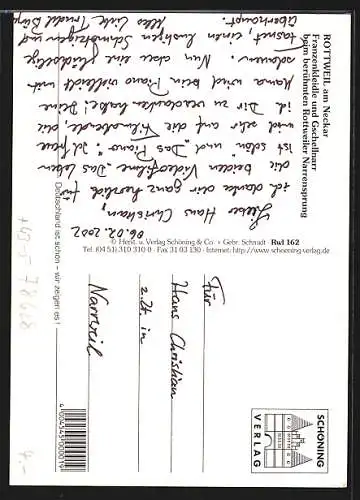 ROTTWEIL am Neckar
Franzenkleidle und Gschellnarr
beim berühmten Rottweiler Narrensprung
06.02.2002
Lieber Hans Christian,
ich danke dir ganz herzlich für
die beiden Videofilme "Das Leben
ist schön" und "Das Piano". Ich freue
mich sehr auf die Filmabende, die
ich Dir zu verdanken habe! Deine
Mama wird beim Piano vielleicht mit
schauen. Nun aber eine glückselige
Fasnet, einen lustigen Schmotzigen und
überhaupt. Alles Liebe Trudel
© Herst. u. Verlag Schöning & Co. + Gebr. Schmidt · Rwl 162
Tel. (04 51) 310 310 0 · Fax 31 03 130 · Internet: http://www.schoening-verlag.de
Deutschland ist schön – wir zeigen es !
Für
Hans Christian
z.Zt. in
Narrweil
SCHÖNING
VERLAG
4 004345 000019